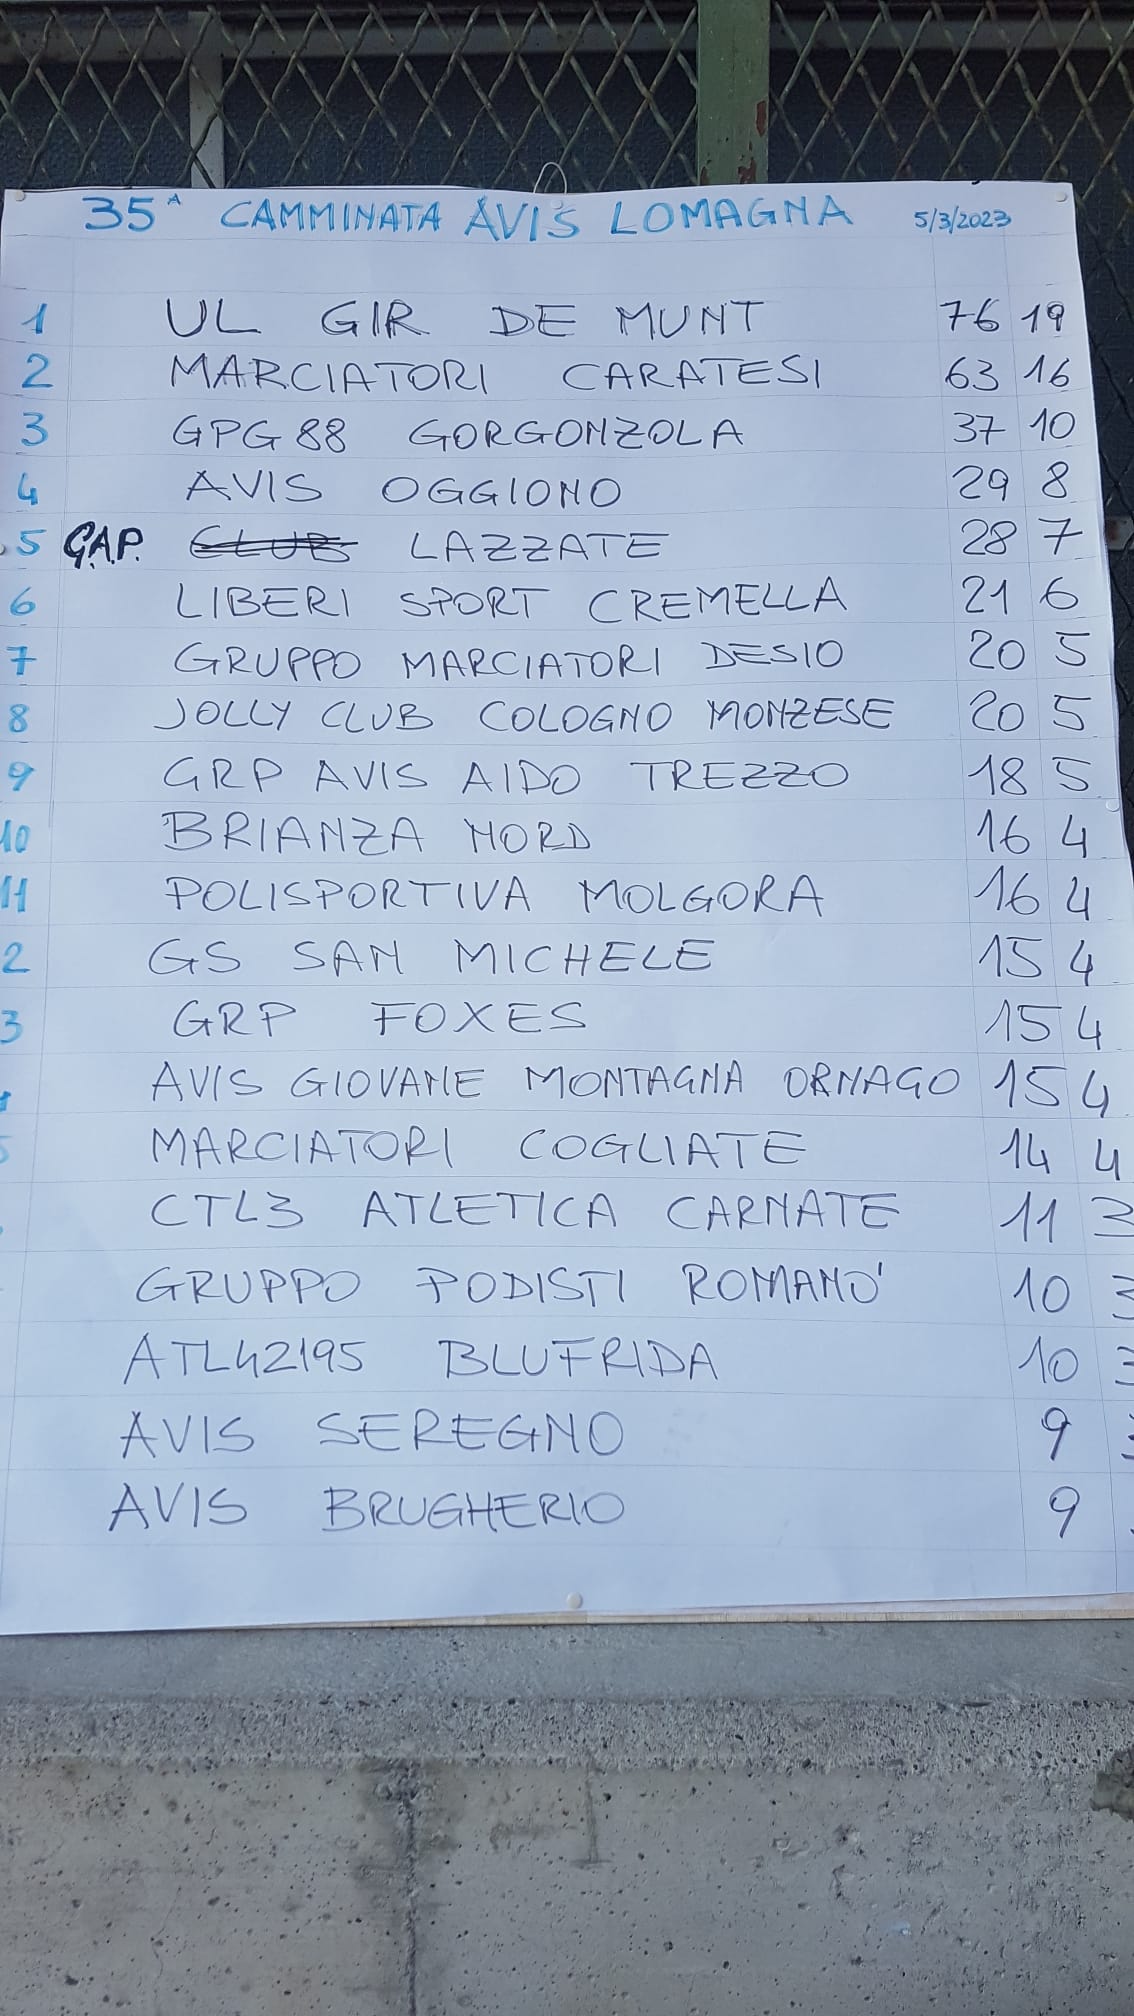 35ᴬ CAMMINATA AVIS LOMAGNA 5/3/2023
1 UL GIR DE MUNT 76 19
2 MARCIATORI CARATESI 63 16
3 GPG88 GORGONZOLA 37 10
4 AVIS OGGIONO 29 8
5 G.A.P. CLUB LAZZATE 28 7
6 LIBERI SPORT CREMELLA 21 6
7 GRUPPO MARCIATORI DESIO 20 5
8 JOLLY CLUB COLOGNO MONZESE 20 5
9 GRP AVIS AIDO TREZZO 18 5
10 BRIANZA NORD 16 4
11 POLISPORTIVA MOLGORA 16 4
2 GS SAN MICHELE 15 4
3 GRP FOXES 15 4
AVIS GIOVANE MONTAGNA ORNAGO 15 4
MARCIATORI COGLIATE 14 4
CTL3 ATLETICA CARNATE 11 3
GRUPPO PODISTI ROMANO' 10 3
ATL42195 BLUFRIDA 10 3
AVIS SEREGNO 9
AVIS BRUGHERIO 9